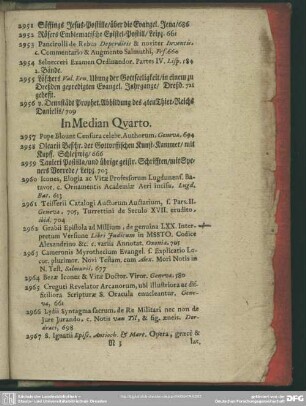 2951 Göttings Jesus-Postille/über die Evangel. Jena/686
2952 Rösers Emblematische Epistel-Postill/Leipz. 661
2953 Pancirolli de Rebus Deperditis & noviter Inventis c. Commentario & Augmento Salmuthi, Frf. 660
2954 Selneccerï Examen Ordinandor. Partes IV. Lips. 584
2. Bände.
2955 Löschers Vol. Evn. Ubung der Gottseeligkeit/in einem zu
Dreßden gepredigten Evangel. Jahrgange/ Dreßd. 712
geheftt.
2956 v. Demstädt Prophet. Abbildung des 4ten Thier-Reichs
Danielis/ 709
In Median Qvarto.
2957 Pope Blount Censura celebr. Authorum. Genevæ, 694
2958 Olearii Beschr. der Gottorfischen Kunst-Kammer/ mit
Kupff. Schleßwig/ 666
2959 Tauleri Postilla/und übrige geistr. Schrifften/mit Speners Vorrede/ Leipz. 703
2960 Icones, Elogia ac Vitæ Professorum Lugdunens. Batavor. c. Ornamentis Academiæ Aeri incisis. Lugd.
Bat. 613
2961 Teisserii Catalogi Auctorum Auctarium, s. Pars II.
Genevæ, 705, Turrettini de Seculo XVII. erudito.
ibid. 704
2962 Grabii Epistola ad Millium, de genuina LXX. Interpretum Versione Libri Judicum in MSSTO. Codice
Alexandrino &c. c. variis Annotat. Oxonia. 705
2963 Cameronis Myrothecium Evangel. s. Explicatio Locor. plurimor. Novi Testam. cum Alex. Mori Notis in
N. Test. Salmurii. 677
2964 Bezæ Icones & Vita Doctor. Viror. Genevæ. 580
2965 Creguti Revelator Arcanorum, ubi illustriora ac difficiliora Scripturæ S. Oracula enucleantur, Geneva, 661
2966 Lydii Syntagma sacrum. de Re Militari nec non de
Jure Jurando. c. Notis van Til, & fig. æneis. Dordraci, 698
2967 S. Ignatii Episc. Antioch. & Mart. Opera, græcè &
lat.